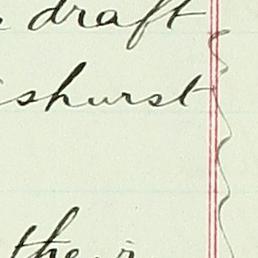 draft
shurst
their